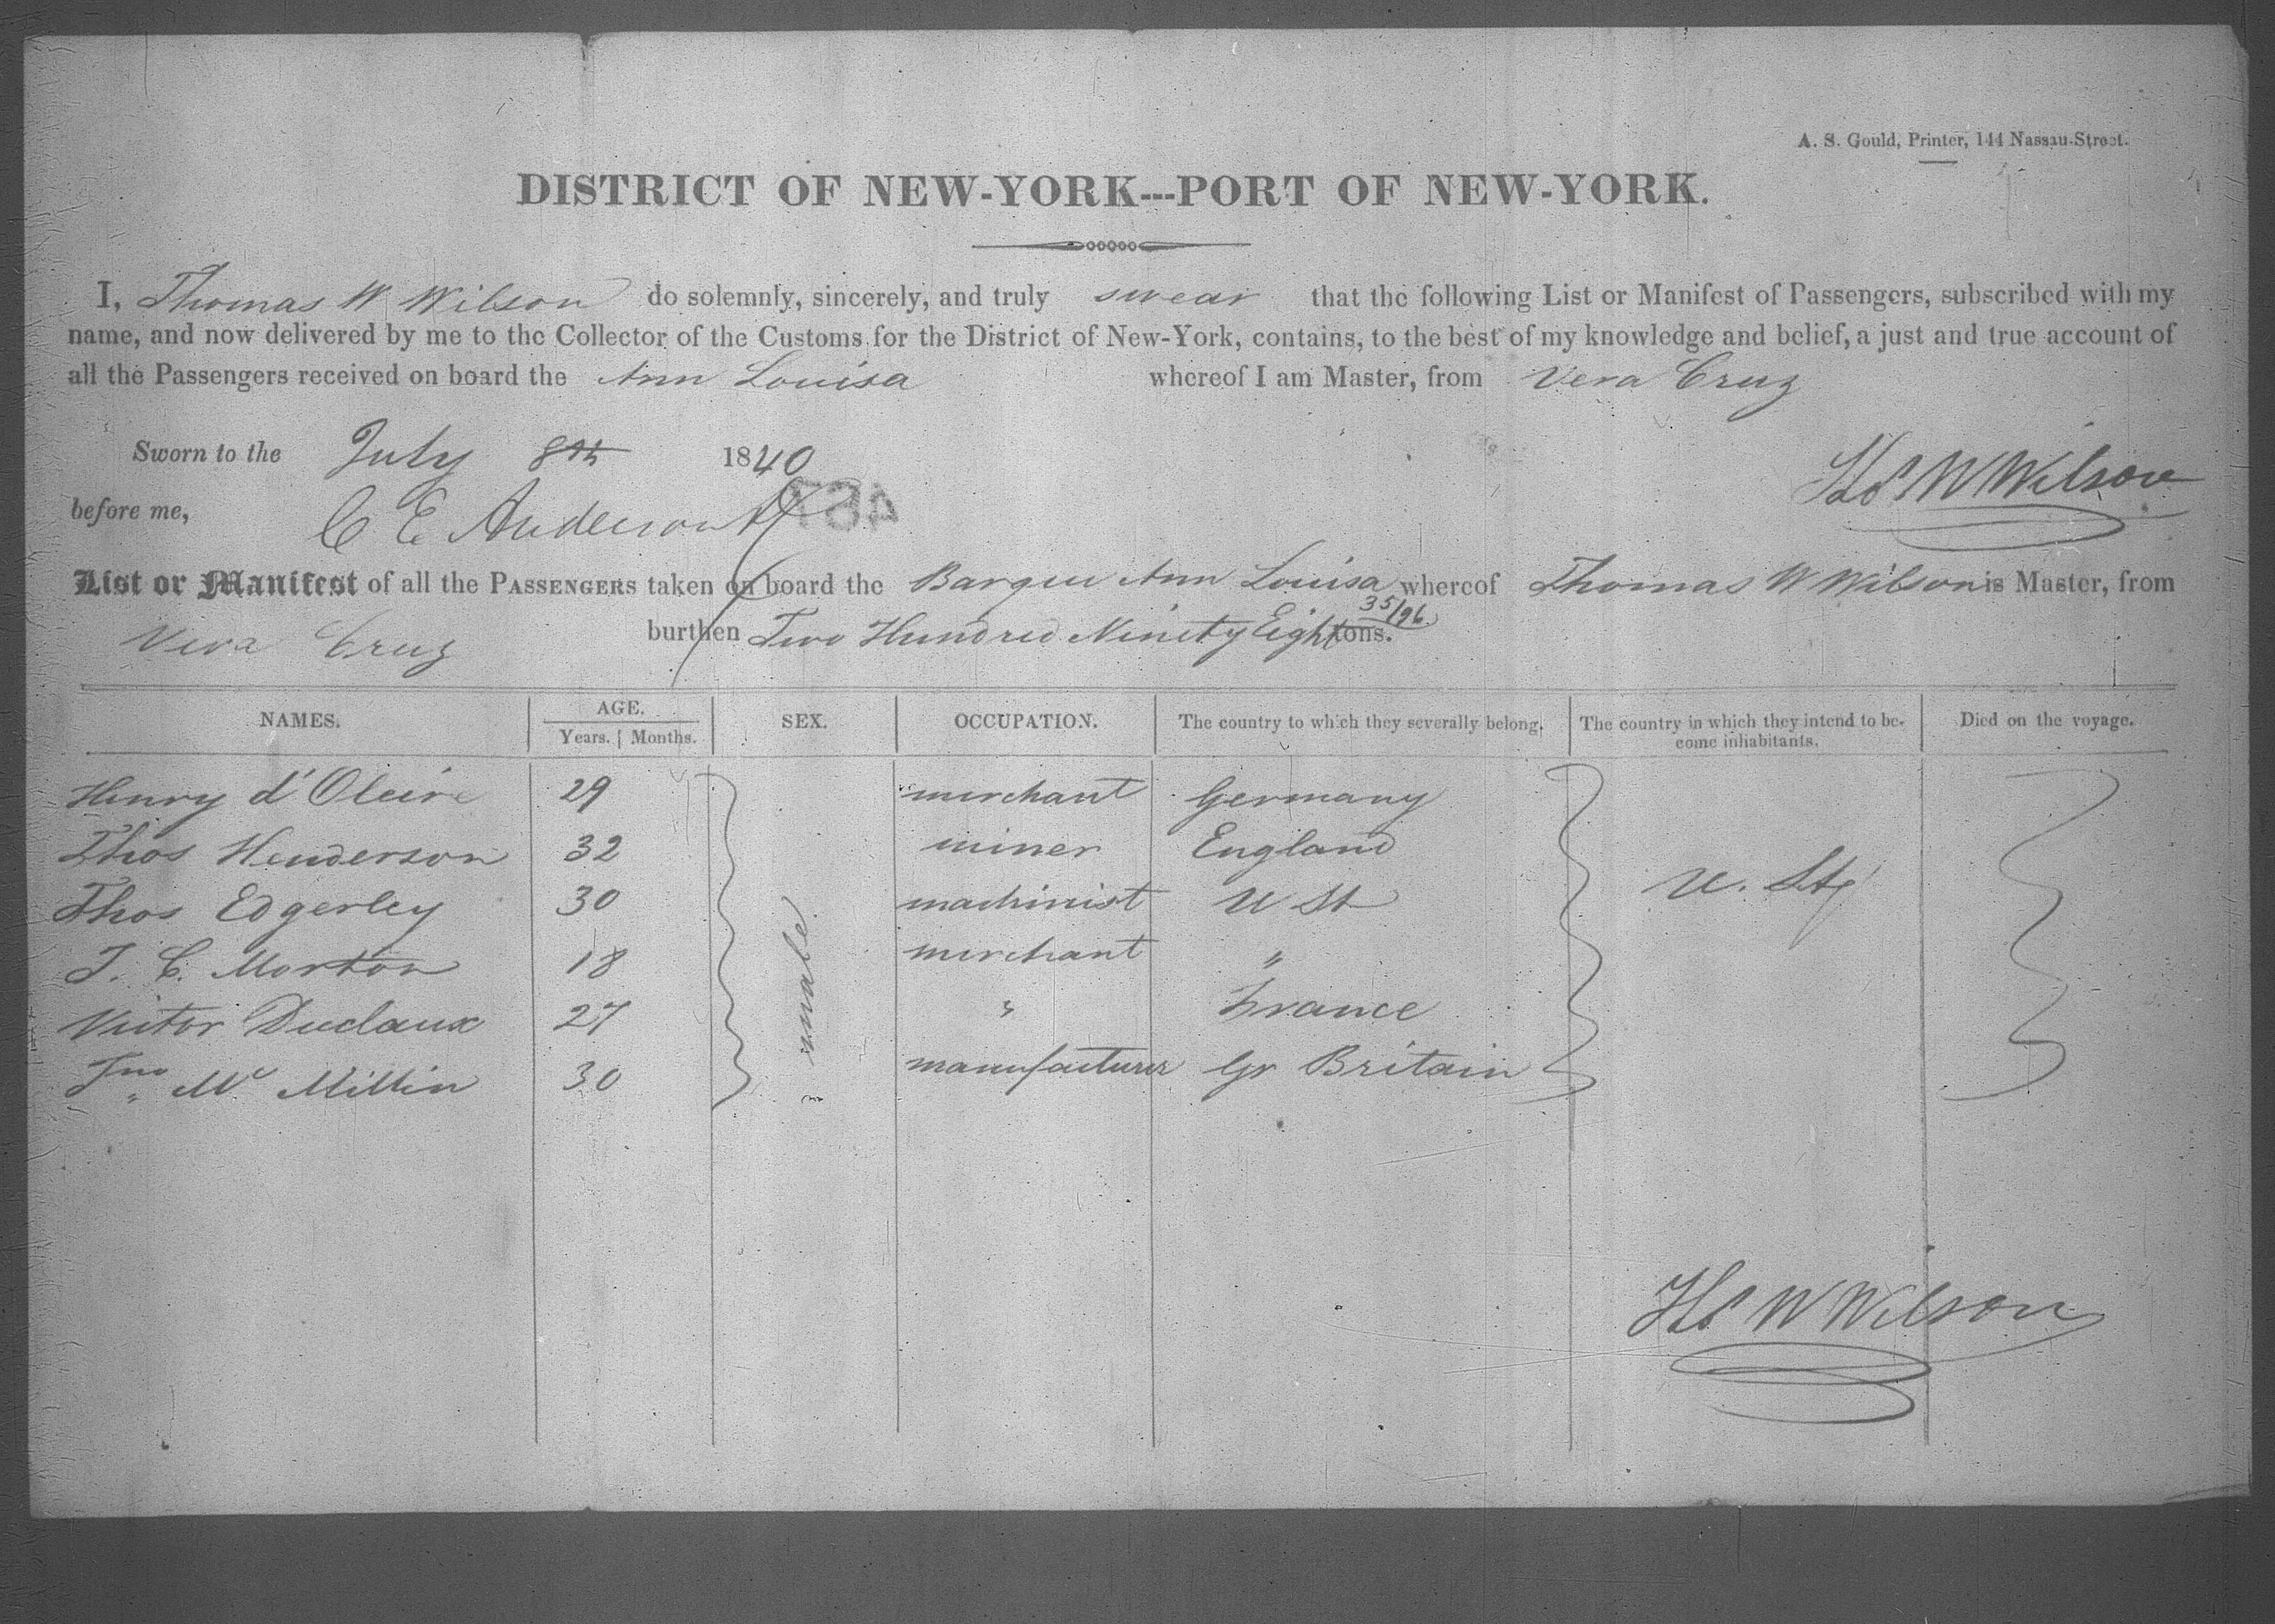 A. S. Gould, Printer, 144 Nassau-Street.
DISTRICT OF NEW-YORK---PORT OF NEW-YORK.
I, Thomas W Wilson do solemnly, sincerely, and truly swear that the following List or Manifest of Passengers, subscribed with my
name, and now delivered by me to the Collector of the Customs for the District of New-York, contains, to the best of my knowledge and belief, a just and true account of
all the Passengers received on board the Ann Louisa whereof I am Master, from Vera Cruz
Sworn to the July 8th 1840
Thos W Wilson
before me, C E Anderson
457
List or Manifest of all the PASSENGERS taken on board the Barque Ann Louisa whereof Thomas W Wilson is Master, from
Vera Cruz burthen Two Hundred Ninety Eight 35/96 tons.
NAMES. AGE. Years. Months. SEX. OCCUPATION. The country to which they severally belong. The country in which they intend to become inhabitants. Died on the voyage.
Henry d'Oleire 29 merchant Germany
Thos Henderson 32 miner England
Thos Edgerley 30 male machinist U St U. Sts
J. C. Morton 18 merchant "
Victor Duclaux 27 " France
Jno Mc Millin 30 manufacturer Gr Britain
Thos W Wilson